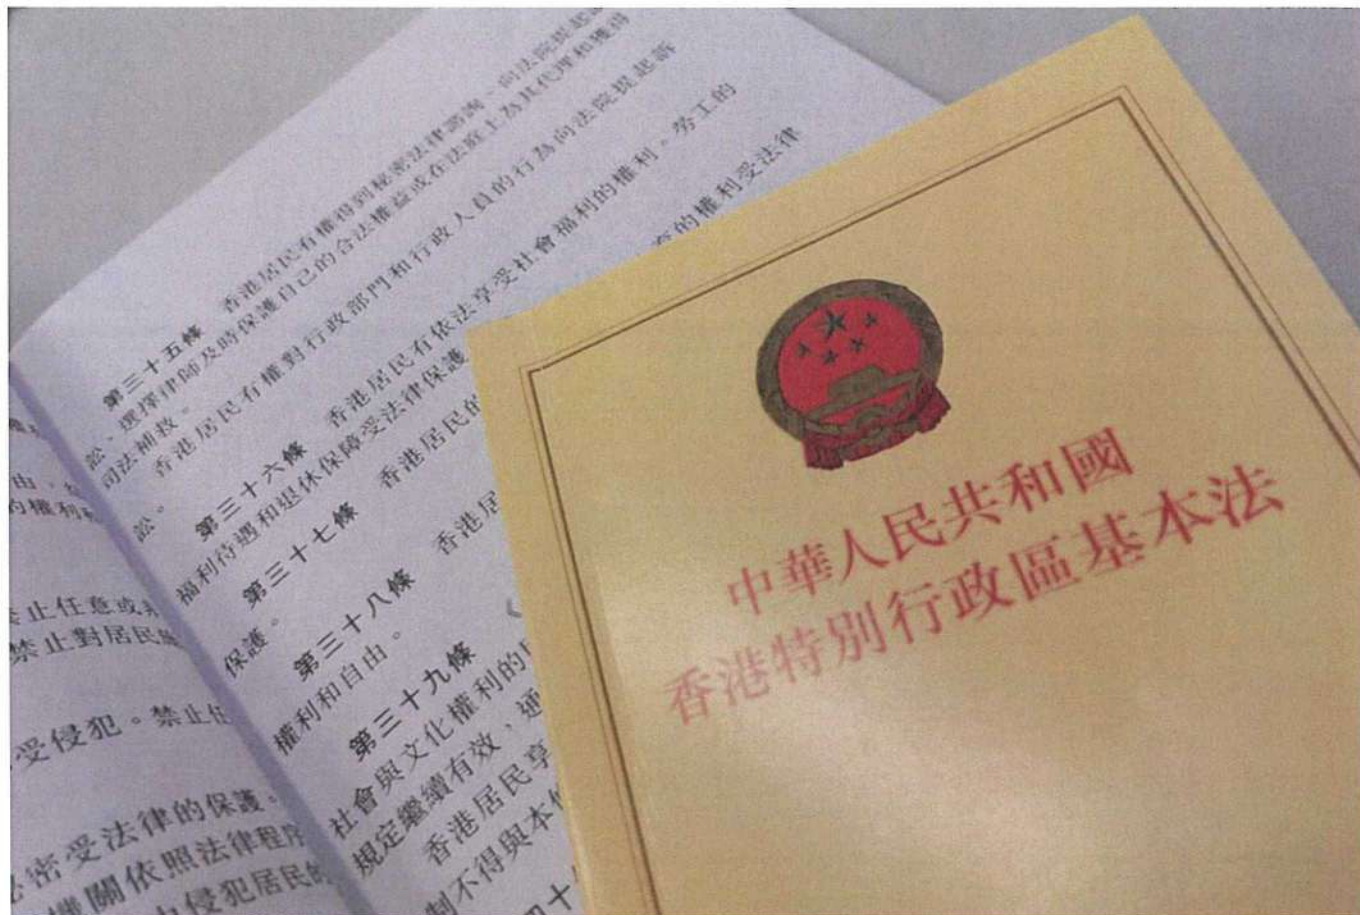 香港居民有權得到秘密法律諮詢、向法院提起
第三十五條
訟、選擇律師及時保護自己的合法權益或在法庭上為其代理和獲得
司法補救。
香港居民有權對行政部門和行政人員的行為向法院提起訴
訟。
第三十六條 香港居民有依法享受社會福利的權利。勞工的
福利待遇和退休保障受法律保護
第三十七條 香港居民的
的權利受法律
保護。
第三十八條 香港居
權利和自由。
第三十九條
社會與文化權利的
規定繼續有效，通
香港居民享
制不得與本
四十
由、
的權利
禁止任意或
禁止對居民
受侵犯。禁止任
密受法律的保護。
機關依照法律程序
侵犯居民的
中華人民共和國
香港特別行政區基本法